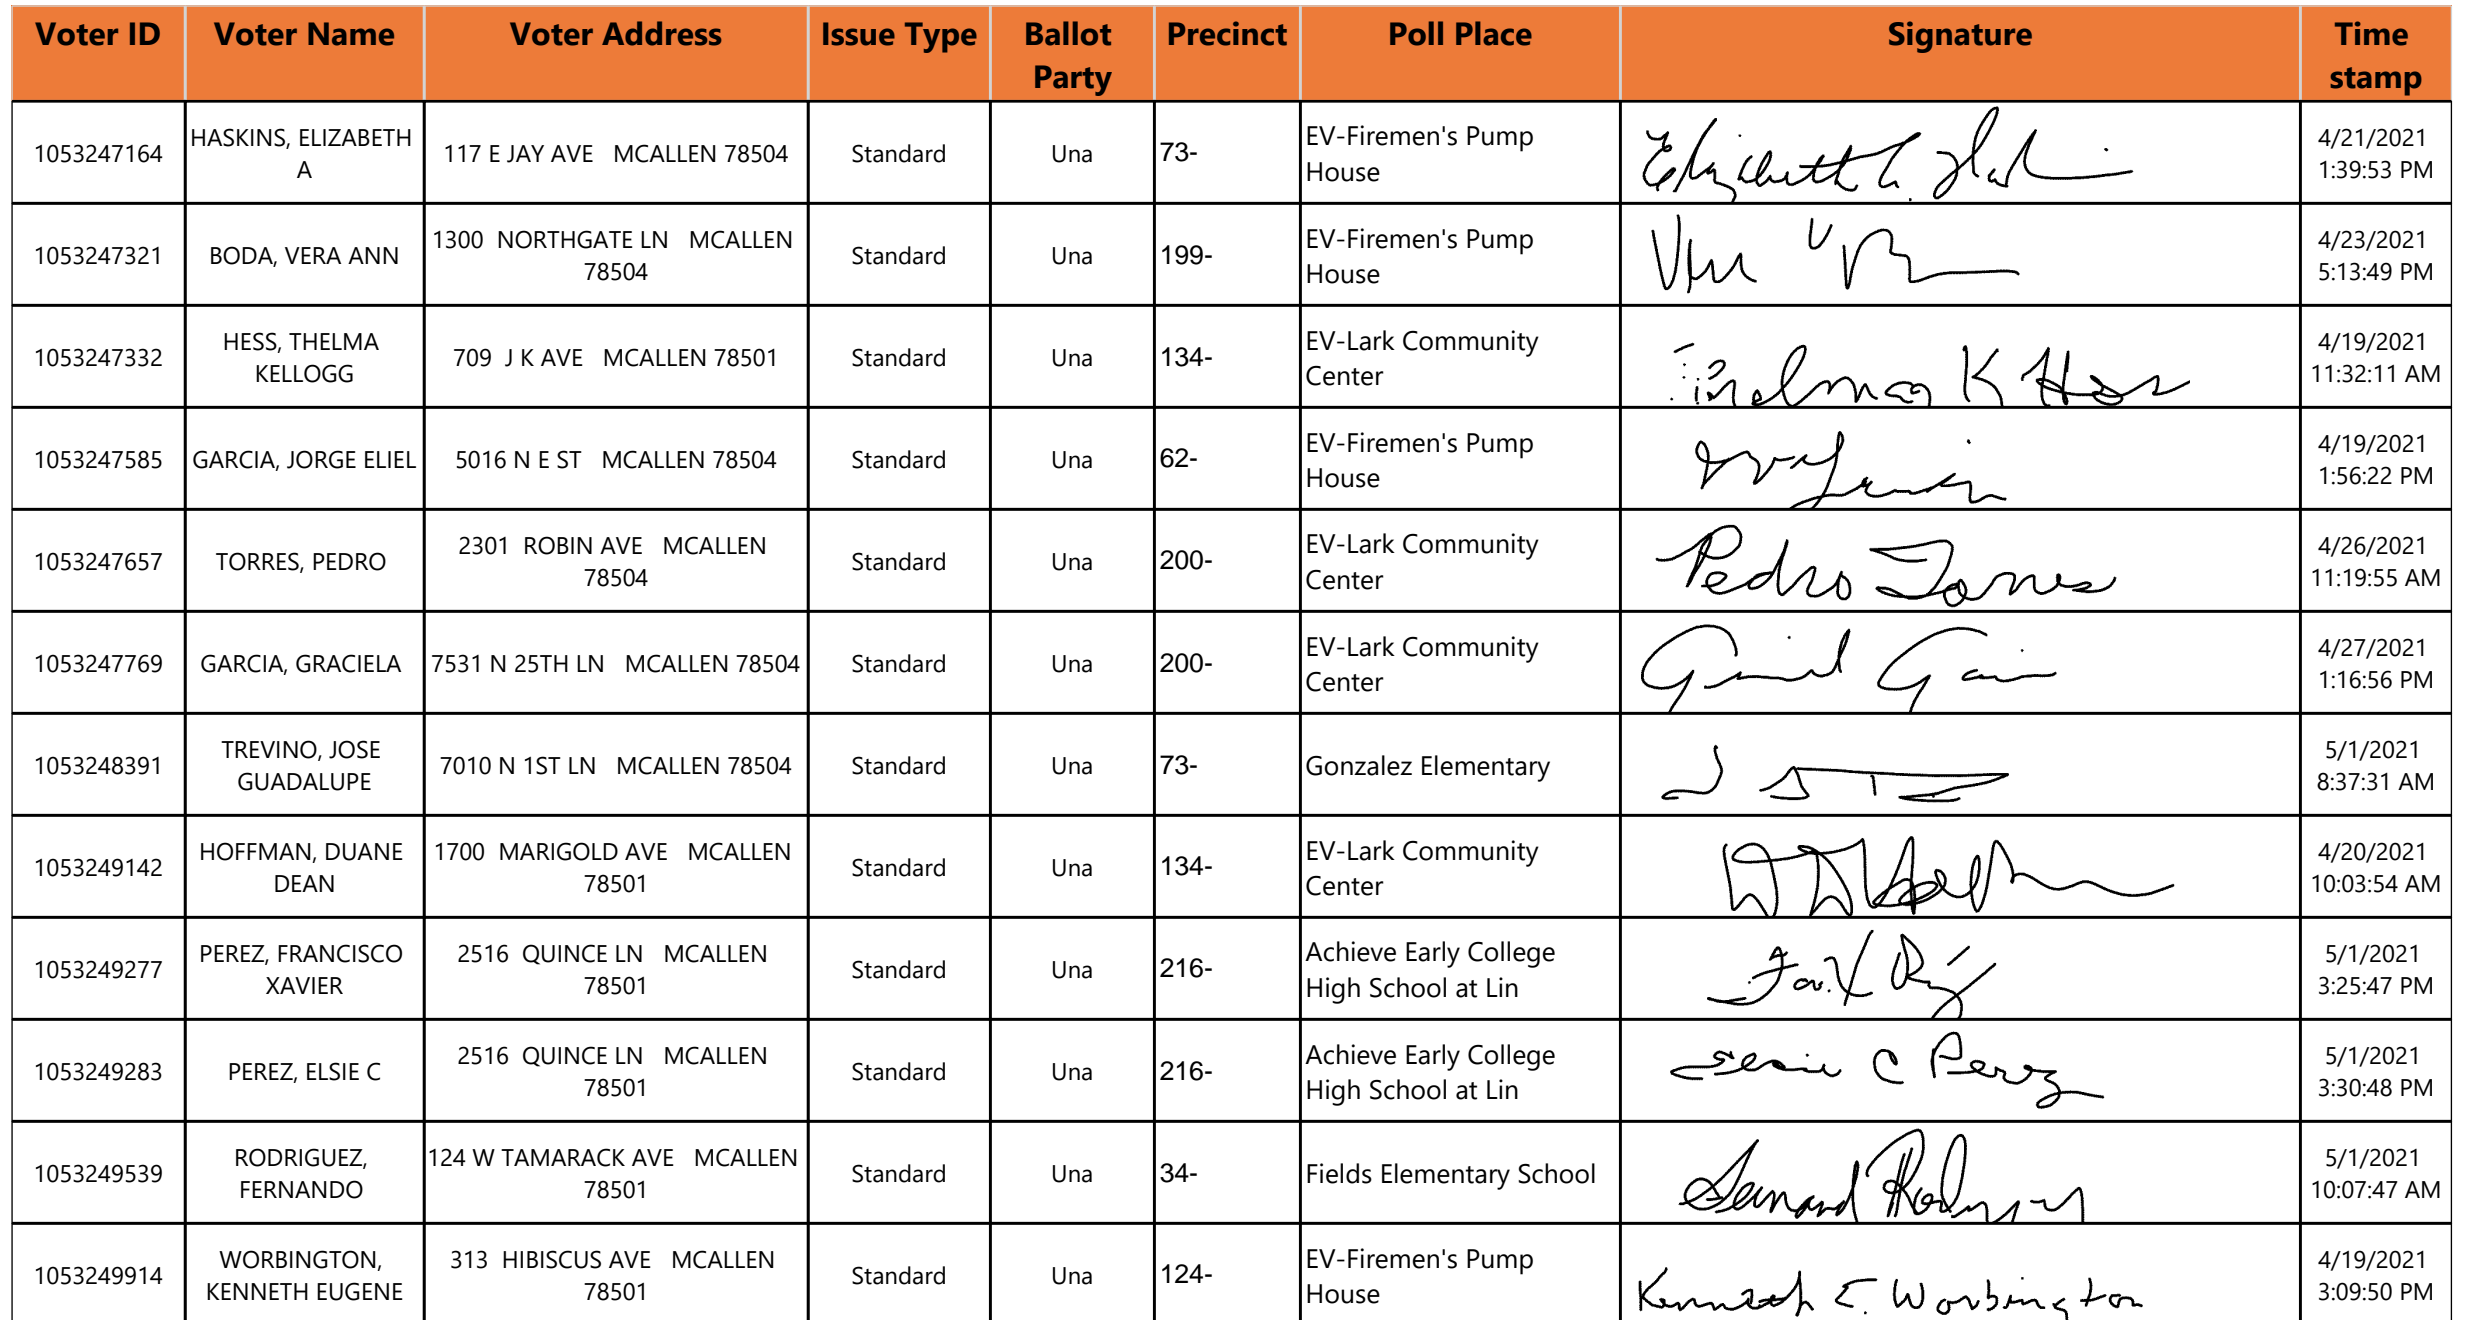 Voter ID Voter Name Voter Address Issue Type Ballot Party Precinct Poll Place Signature Time stamp
1053247164 HASKINS, ELIZABETH A 117 E JAY AVE MCALLEN 78504 Standard Una 73- EV-Firemen's Pump House Elizabeth A. 4/21/2021 1:39:53 PM
1053247321 BODA, VERA ANN 1300 NORTHGATE LN MCALLEN 78504 Standard Una 199- EV-Firemen's Pump House 4/23/2021 5:13:49 PM
1053247332 HESS, THELMA KELLOGG 709 J K AVE MCALLEN 78501 Standard Una 134- EV-Lark Community Center Thelma K Hess 4/19/2021 11:32:11 AM
1053247585 GARCIA, JORGE ELIEL 5016 N E ST MCALLEN 78504 Standard Una 62- EV-Firemen's Pump House 4/19/2021 1:56:22 PM
1053247657 TORRES, PEDRO 2301 ROBIN AVE MCALLEN 78504 Standard Una 200- EV-Lark Community Center Pedro Torres 4/26/2021 11:19:55 AM
1053247769 GARCIA, GRACIELA 7531 N 25TH LN MCALLEN 78504 Standard Una 200- EV-Lark Community Center 4/27/2021 1:16:56 PM
1053248391 TREVINO, JOSE GUADALUPE 7010 N 1ST LN MCALLEN 78504 Standard Una 73- Gonzalez Elementary 5/1/2021 8:37:31 AM
1053249142 HOFFMAN, DUANE DEAN 1700 MARIGOLD AVE MCALLEN 78501 Standard Una 134- EV-Lark Community Center 4/20/2021 10:03:54 AM
1053249277 PEREZ, FRANCISCO XAVIER 2516 QUINCE LN MCALLEN 78501 Standard Una 216- Achieve Early College High School at Lin 5/1/2021 3:25:47 PM
1053249283 PEREZ, ELSIE C 2516 QUINCE LN MCALLEN 78501 Standard Una 216- Achieve Early College High School at Lin C Perez 5/1/2021 3:30:48 PM
1053249539 RODRIGUEZ, FERNANDO 124 W TAMARACK AVE MCALLEN 78501 Standard Una 34- Fields Elementary School 5/1/2021 10:07:47 AM
1053249914 WORBINGTON, KENNETH EUGENE 313 HIBISCUS AVE MCALLEN 78501 Standard Una 124- EV-Firemen's Pump House Kenneth E. Worbington 4/19/2021 3:09:50 PM